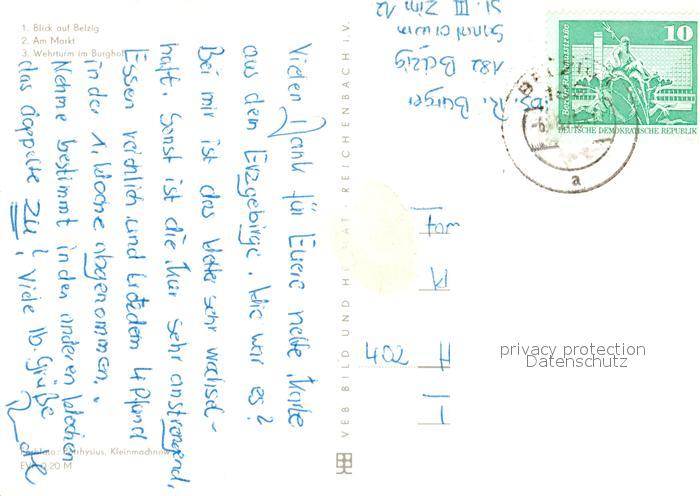 1. Blick auf Belzig
2. Am Markt
3. Wehrturm im Burghof
Vielen Dank für Eure nette Karte
aus dem Erzgebirge. Wie war es?
Bei mir ist das Wetter sehr wechsel-
haft. Sonst ist die Kur sehr anstrengend,
Essen reichlich und trotzdem 4 Pfund
in der 1. Woche abgenommen.
Nehme bestimmt in den anderen Wochen
das doppelte zu! Viele lb. Grüße
Kleinmachnow
EVP 0,20 M
VEB BILD UND HEIMAT · REICHENBACH I. V.
R. Burger
182 Belzig
Sanatorium
St. III Zim 12
10
DEUTSCHE DEMOKRATISCHE REPUBLIK
a
402
privacy protection
Datenschutz